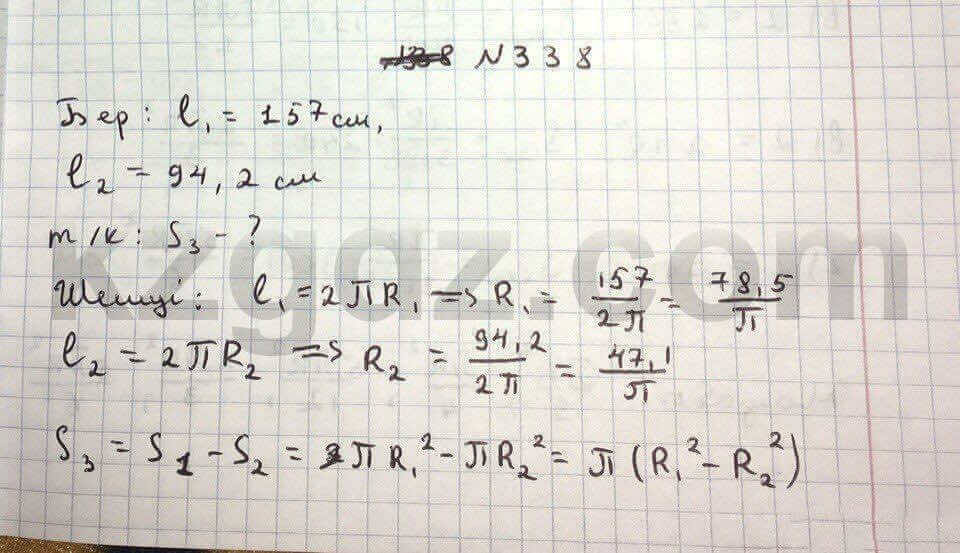 N 3 3 8
Бер: l₁ = 157 см,
l₂ = 94,2 см
т/к: S₃ - ?
kzgdz.com
Шешуі: l₁ = 2πR₁ => R₁ = 157/2π = 78,5/π
l₂ = 2πR₂ => R₂ = 94,2/2π = 47,1/π
S₃ = S₁ - S₂ = πR₁² - πR₂² = π(R₁² - R₂²)